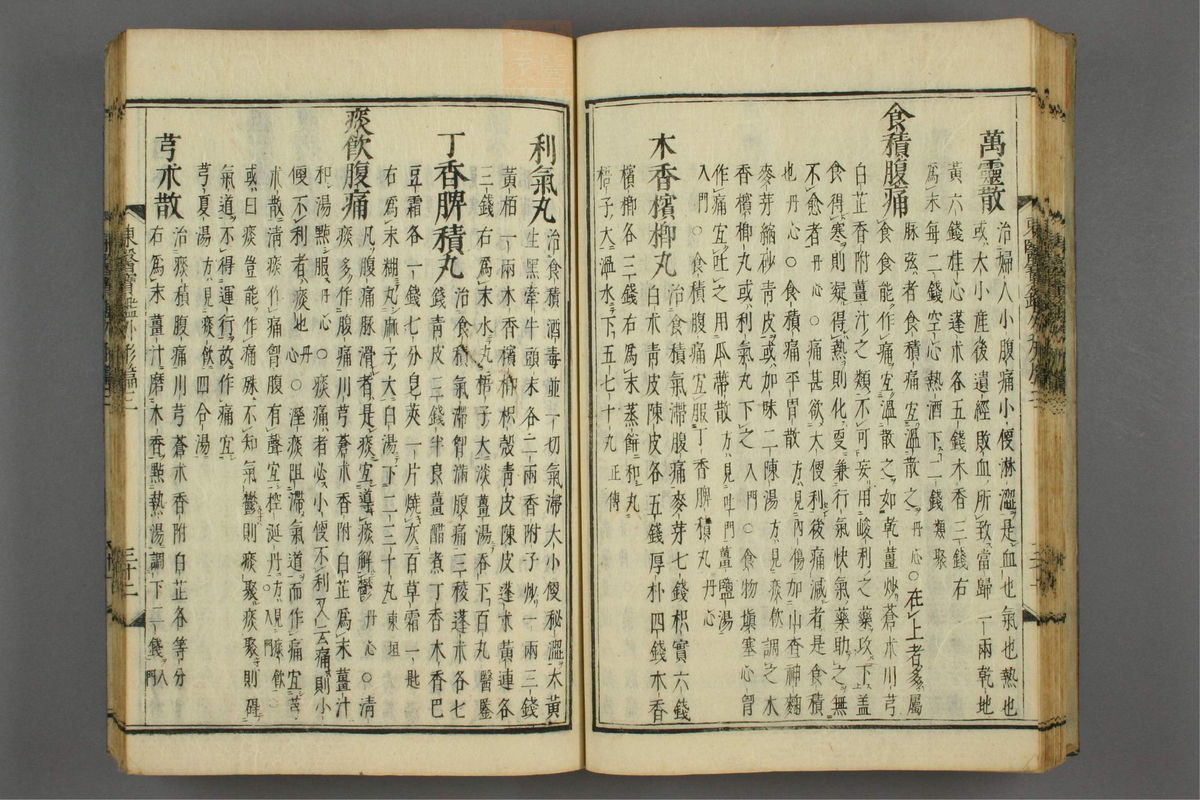 萬靈散
治婦人小腹痛小便淋澁是血也氣也熱也
或大小産後遺經敗血所致當歸一兩乾地
黃六錢桂心蓬朮各五錢木香三錢右
爲末每二錢空心熱酒下二錢類聚
食積腹痛
脉弦者食積宜溫散之丹心○在上者多屬
食食能作痛宜溫散之如乾薑炒蒼朮川芎
白芷香附薑汁之類不可妄用峻利之藥攻下盖
食得寒則凝得熱則化更兼行氣快氣藥助之無
不愈者丹心○痛甚欲大便利後痛減者是食積
也丹心○食積痛平胃散方見內傷加山査神麴
麥芽縮砂靑皮或加味二陳湯方見痰飮調之木
香檳榔丸或利氣丸下之入門○食物塡塞心胷
作痛宜吐之用瓜蔕散方見吐門薑鹽湯
入門○食積腹痛宜服丁香脾積丸丹心
木香檳榔丸
治食積氣滯腹痛麥芽七錢枳實六錢
白朮靑皮陳皮各五錢厚朴四錢木香
檳榔各三錢右爲末蒸餠和丸
梧子大溫水下五七十丸正傳
利氣丸
治食積酒毒並一切氣滯大小便秘澁大黃
生黑牽牛頭末各二兩香附子炒一兩三錢
黃柏一兩木香檳榔枳殼靑皮陳皮蓬朮黃連各
三錢右爲末水丸梧子大淡薑湯呑下百丸醫鑒
丁香脾積丸
治食積氣滯胷滿腹痛三稜蓬朮各七
錢靑皮三錢半良薑醋煮丁香木香巴
豆霜各一錢七分皂莢一片燒灰百草霜一匙
右爲末糊丸麻子大白湯下二三十丸東垣
痰飮腹痛
凡腹痛脉滑者是痰宜導痰解鬱丹心○淸
痰多作腹痛川芎蒼朮香附白芷爲末薑汁
和湯點服丹心○痰痛者必小便不利又云痛則小
便不利者痰也丹心○溼痰阻滯氣道而作痛宜芎
朮散淸痰作痛胷腹有聲宜控涎丹方見痰飮入門○
或曰痰豈能作痛殊不知氣鬱則痰聚痰聚則碍
氣道不得運行故作痛宜
芎夏湯方見痰飮四合湯
芎朮散
治痰積腹痛川芎蒼朮香附白芷各等分
右爲末薑汁磨木香點熱湯調下二錢入門
東醫寶鑑外形篇三
三十二